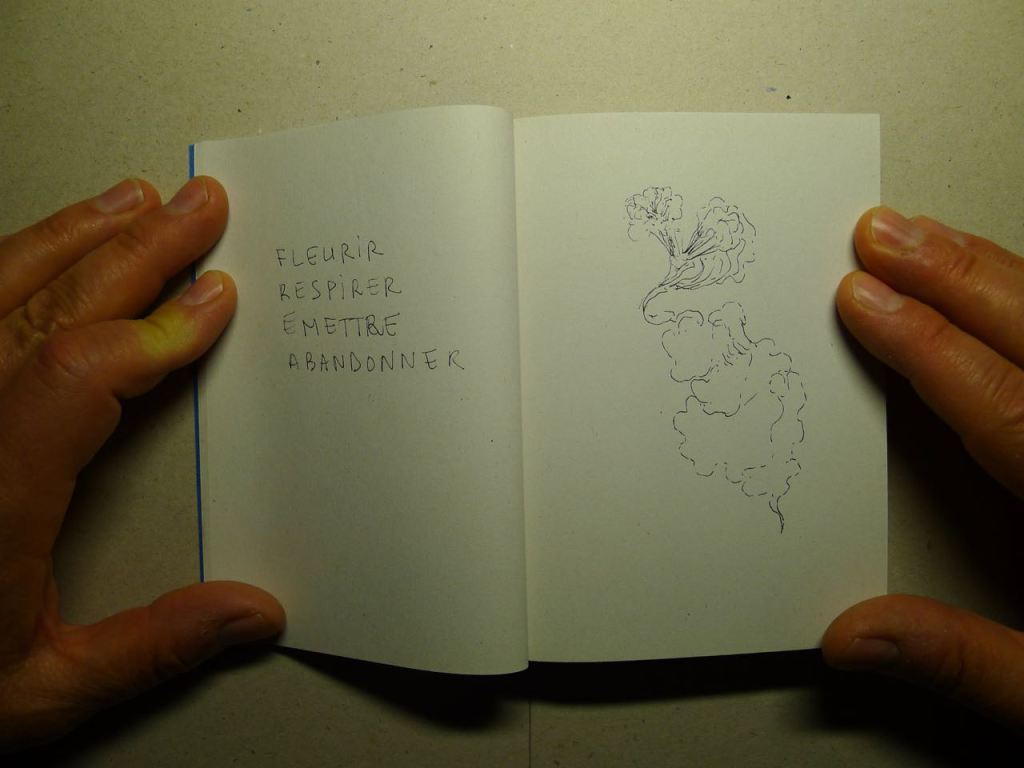 FLEURIR
RESPIRER
ÉMETTRE
ABANDONNER